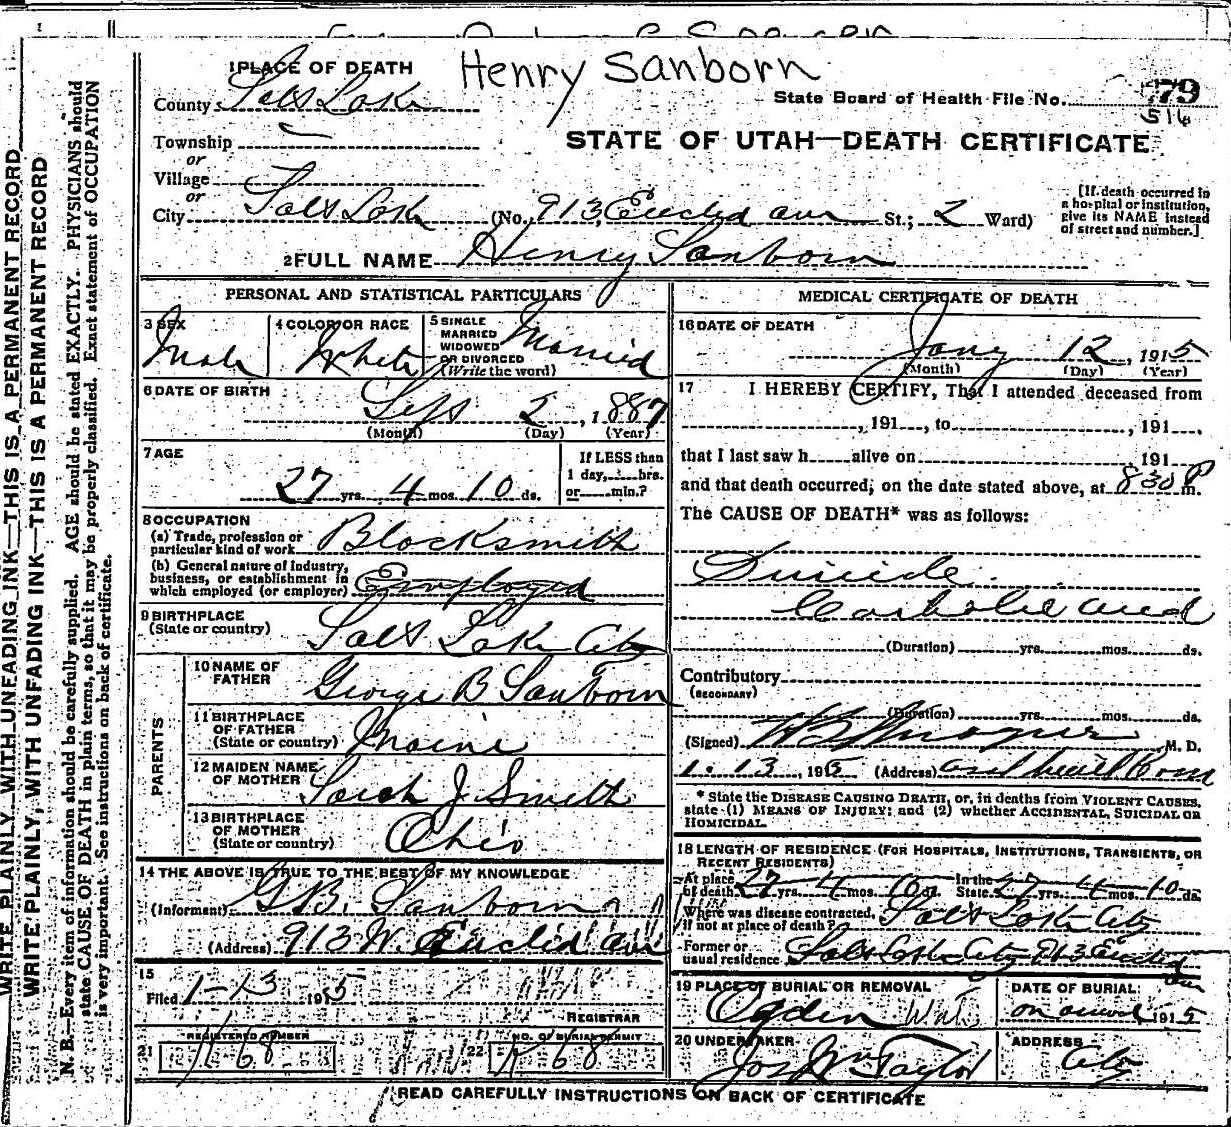 Henry Sanborn
1 PLACE OF DEATH
County Salt Lake
State Board of Health File No. 79
516
STATE OF UTAH—DEATH CERTIFICATE
Township
or
Village
or
City Salt Lake (No. 913 Euclid ave St.; 2 Ward)
[If death occurred in
a hospital or institution,
give its NAME instead
of street and number.]
2 FULL NAME Henry Sanborn
PERSONAL AND STATISTICAL PARTICULARS
3 SEX Male
4 COLOR OR RACE White
5 SINGLE
MARRIED
WIDOWED
OR DIVORCED
(Write the word) Married
6 DATE OF BIRTH
Sept 2, 1887
(Month) (Day) (Year)
7 AGE
27 yrs. 4 mos. 10 ds.
If LESS than
1 day, hrs.
or min.?
8 OCCUPATION
(a) Trade, profession or
particular kind of work Blacksmith
(b) General nature of industry,
business, or establishment in
which employed (or employer) Employed
9 BIRTHPLACE
(State or country) Salt Lake City
PARENTS
10 NAME OF
FATHER George B Sanborn
11 BIRTHPLACE
OF FATHER
(State or country) Maine
12 MAIDEN NAME
OF MOTHER Sarah J. Smith
13 BIRTHPLACE
OF MOTHER
(State or country) Ohio
14 THE ABOVE IS TRUE TO THE BEST OF MY KNOWLEDGE
(Informant) G.B. Sanborn
(Address) 913 W. Euclid ave
15
Filed 1-13 1915
REGISTRAR
21 REGISTERED NUMBER K 68
22 NO. OF BURIAL PERMIT K 68
MEDICAL CERTIFICATE OF DEATH
16 DATE OF DEATH
Jany 12, 1915
(Month) (Day) (Year)
17 I HEREBY CERTIFY, That I attended deceased from
, 191 , to , 191 ,
that I last saw h alive on 191
and that death occurred, on the date stated above, at 8 30 P m.
The CAUSE OF DEATH* was as follows:
Suicide
Carbolic acid
(Duration) yrs. mos. ds.
Contributory
(SECONDARY)
(Duration) yrs. mos. ds.
(Signed) M. D.
1. 13, 1915 (Address)
* State the DISEASE CAUSING DEATH, or, in deaths from VIOLENT CAUSES,
state (1) MEANS OF INJURY; and (2) whether ACCIDENTAL, SUICIDAL OR
HOMICIDAL.
18 LENGTH OF RESIDENCE (FOR HOSPITALS, INSTITUTIONS, TRANSIENTS, OR
RECENT RESIDENTS)
At place
of death 27 yrs. 4 mos. 10 ds. In the
State 27 yrs. 4 mos. 10 ds.
Where was disease contracted,
if not at place of death? Salt Lake City
Former or
usual residence Salt Lake City 913 Euclid
ave
19 PLACE OF BURIAL OR REMOVAL
Ogden Utah
DATE OF BURIAL:
on arrival 1915
20 UNDERTAKER
Jos Wm Taylor
ADDRESS
City
READ CAREFULLY INSTRUCTIONS ON BACK OF CERTIFICATE
WRITE PLAINLY, WITH UNFADING INK—THIS IS A PERMANENT RECORD
WRITE PLAINLY, WITH UNFADING INK—THIS IS A PERMANENT RECORD
N. B.—Every item of information should be carefully supplied. AGE should be stated EXACTLY. PHYSICIANS should
state CAUSE OF DEATH in plain terms, so that it may be properly classified. Exact statement of OCCUPATION
is very important. See instructions on back of certificate.